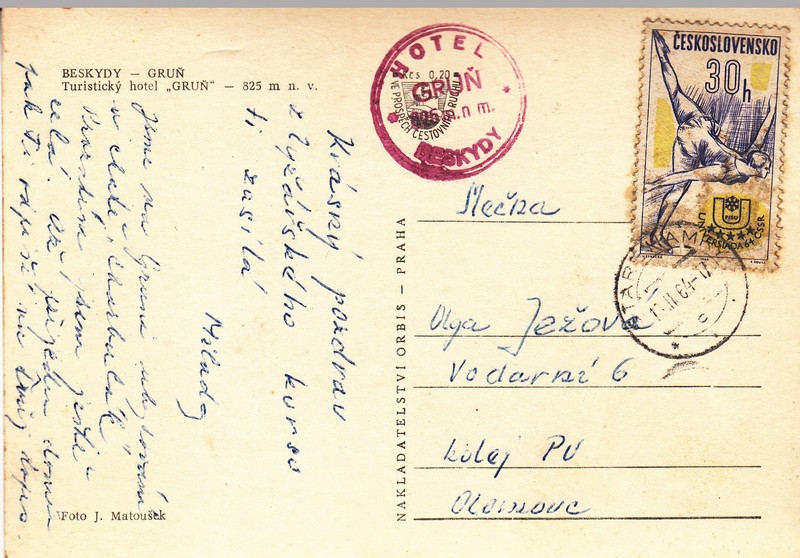 BESKYDY — GRUŇ
Turistický hotel „GRUŇ“ — 825 m n. v.
HOTEL
Kčs 0,20
VE PROSPĚCH CESTOVNÍHO RUCHU
GRUŇ
825 m.n m.
BESKYDY
ČESKOSLOVENSKO
30h
FISU
UNIVERSIÁDA 64 ČSSR
STARÉ HAMRY
11.II.64-17
c
Krásný pozdrav
z lyžařského kursu
ti zasílá
Milada
Jsme na Gruni ubytováni
v chatě „Charbulák“
Prozatím jsem ještě
celá. Až přijedu domu
tak ti odpovím na Tvůj dopis.
NAKLADATELSTVÍ ORBIS — PRAHA
Slečna
Olga Ježová
Vodární 6
kolej PU
Olomouc
Foto J. Matoušek